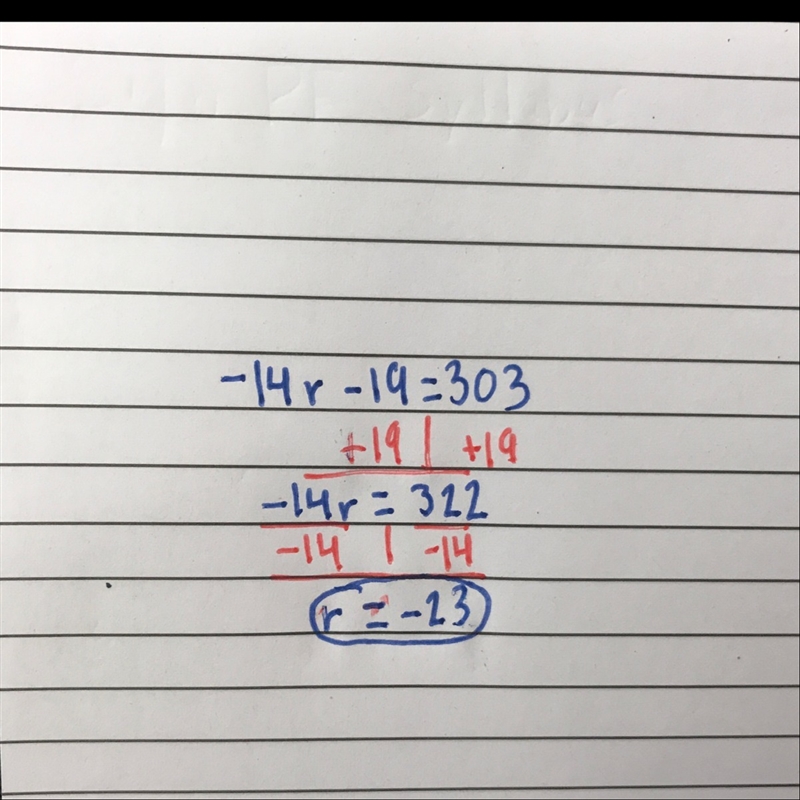 -14r -19=303
+19 | +19
-14r = 322
-14 | -14
r = -23